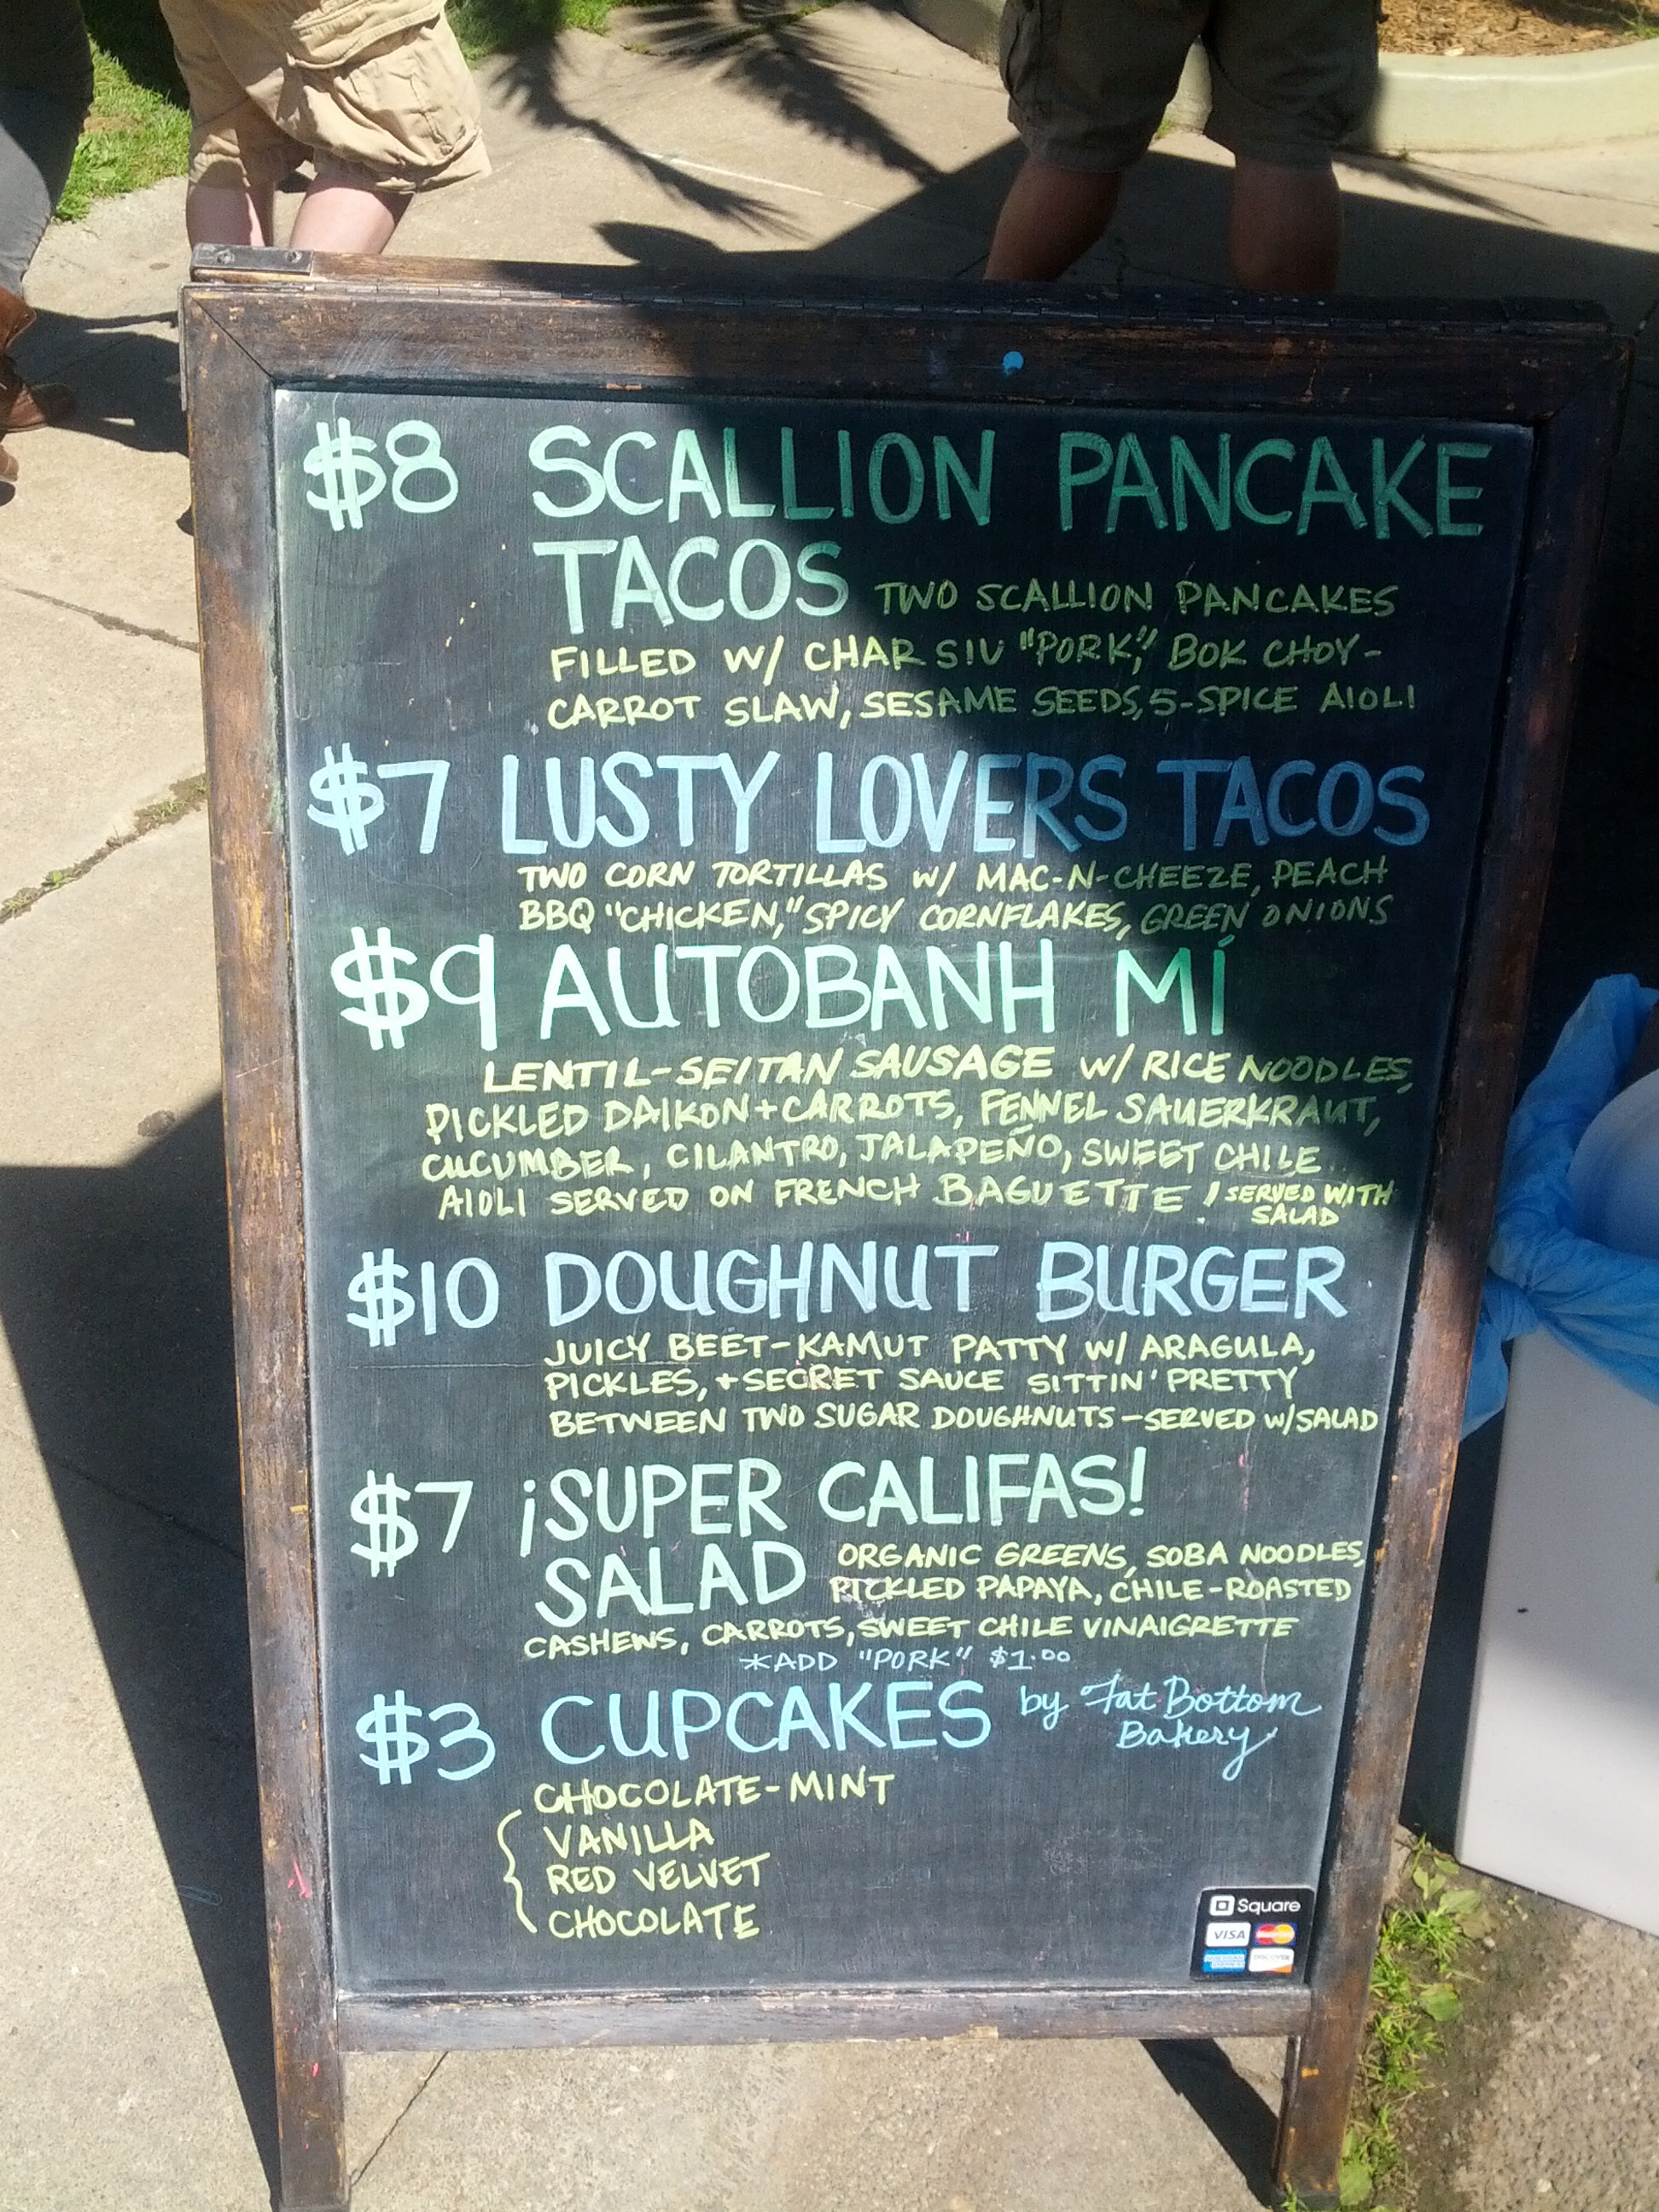 $8 SCALLION PANCAKE
TACOS TWO SCALLION PANCAKES
FILLED W/ CHAR SIU "PORK," BOK CHOY-
CARROT SLAW, SESAME SEEDS, 5-SPICE AIOLI
$7 LUSTY LOVERS TACOS
TWO CORN TORTILLAS W/ MAC-N-CHEEZE, PEACH
BBQ "CHICKEN," SPICY CORNFLAKES, GREEN ONIONS
$9 AUTOBANH MÍ
LENTIL-SEITAN SAUSAGE W/ RICE NOODLES,
PICKLED DAIKON + CARROTS, FENNEL SAUERKRAUT,
CUCUMBER, CILANTRO, JALAPEÑO, SWEET CHILE
AIOLI SERVED ON FRENCH BAGUETTE! SERVED WITH
SALAD
$10 DOUGHNUT BURGER
JUICY BEET-KAMUT PATTY W/ ARAGULA,
PICKLES, + SECRET SAUCE SITTIN' PRETTY
BETWEEN TWO SUGAR DOUGHNUTS - SERVED W/ SALAD
$7 ¡SUPER CALIFAS!
SALAD ORGANIC GREENS, SOBA NOODLES,
PICKLED PAPAYA, CHILE-ROASTED
CASHEWS, CARROTS, SWEET CHILE VINAIGRETTE
*ADD "PORK" $1.00
$3 CUPCAKES by Fat Bottom
Bakery
CHOCOLATE-MINT
VANILLA
RED VELVET
CHOCOLATE
Square
VISA MasterCard
AMERICAN EXPRESS DISCOVER